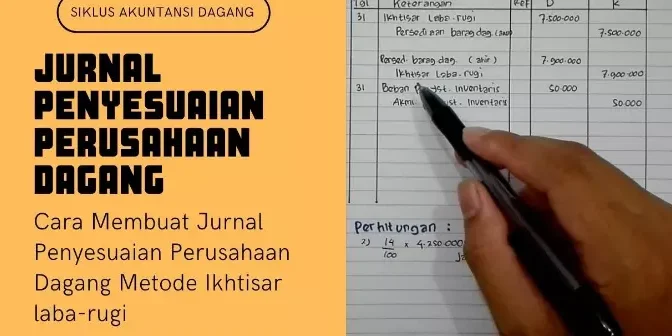 SIKLUS AKUNTANSI DAGANG
JURNAL
PENYESUAIAN
PERUSAHAAN
DAGANG
Cara Membuat Jurnal
Penyesuaian Perusahaan
Dagang Metode Ikhtisar
laba-rugi
Tgl Keterangan Ref D K
31 Ikhtisar Laba-rugi 7.500.000
Persediaan barag dag. (awal) 7.500.000
Persed. barag dag. (akhir) 7.900.000
Ikhtisar Laba-rugi 7.900.000
31 Beban st. Inventaris 50.000
Akm. st. Inventaris 50.000
Perhitungan :
2) 14/100 x 4.250.000